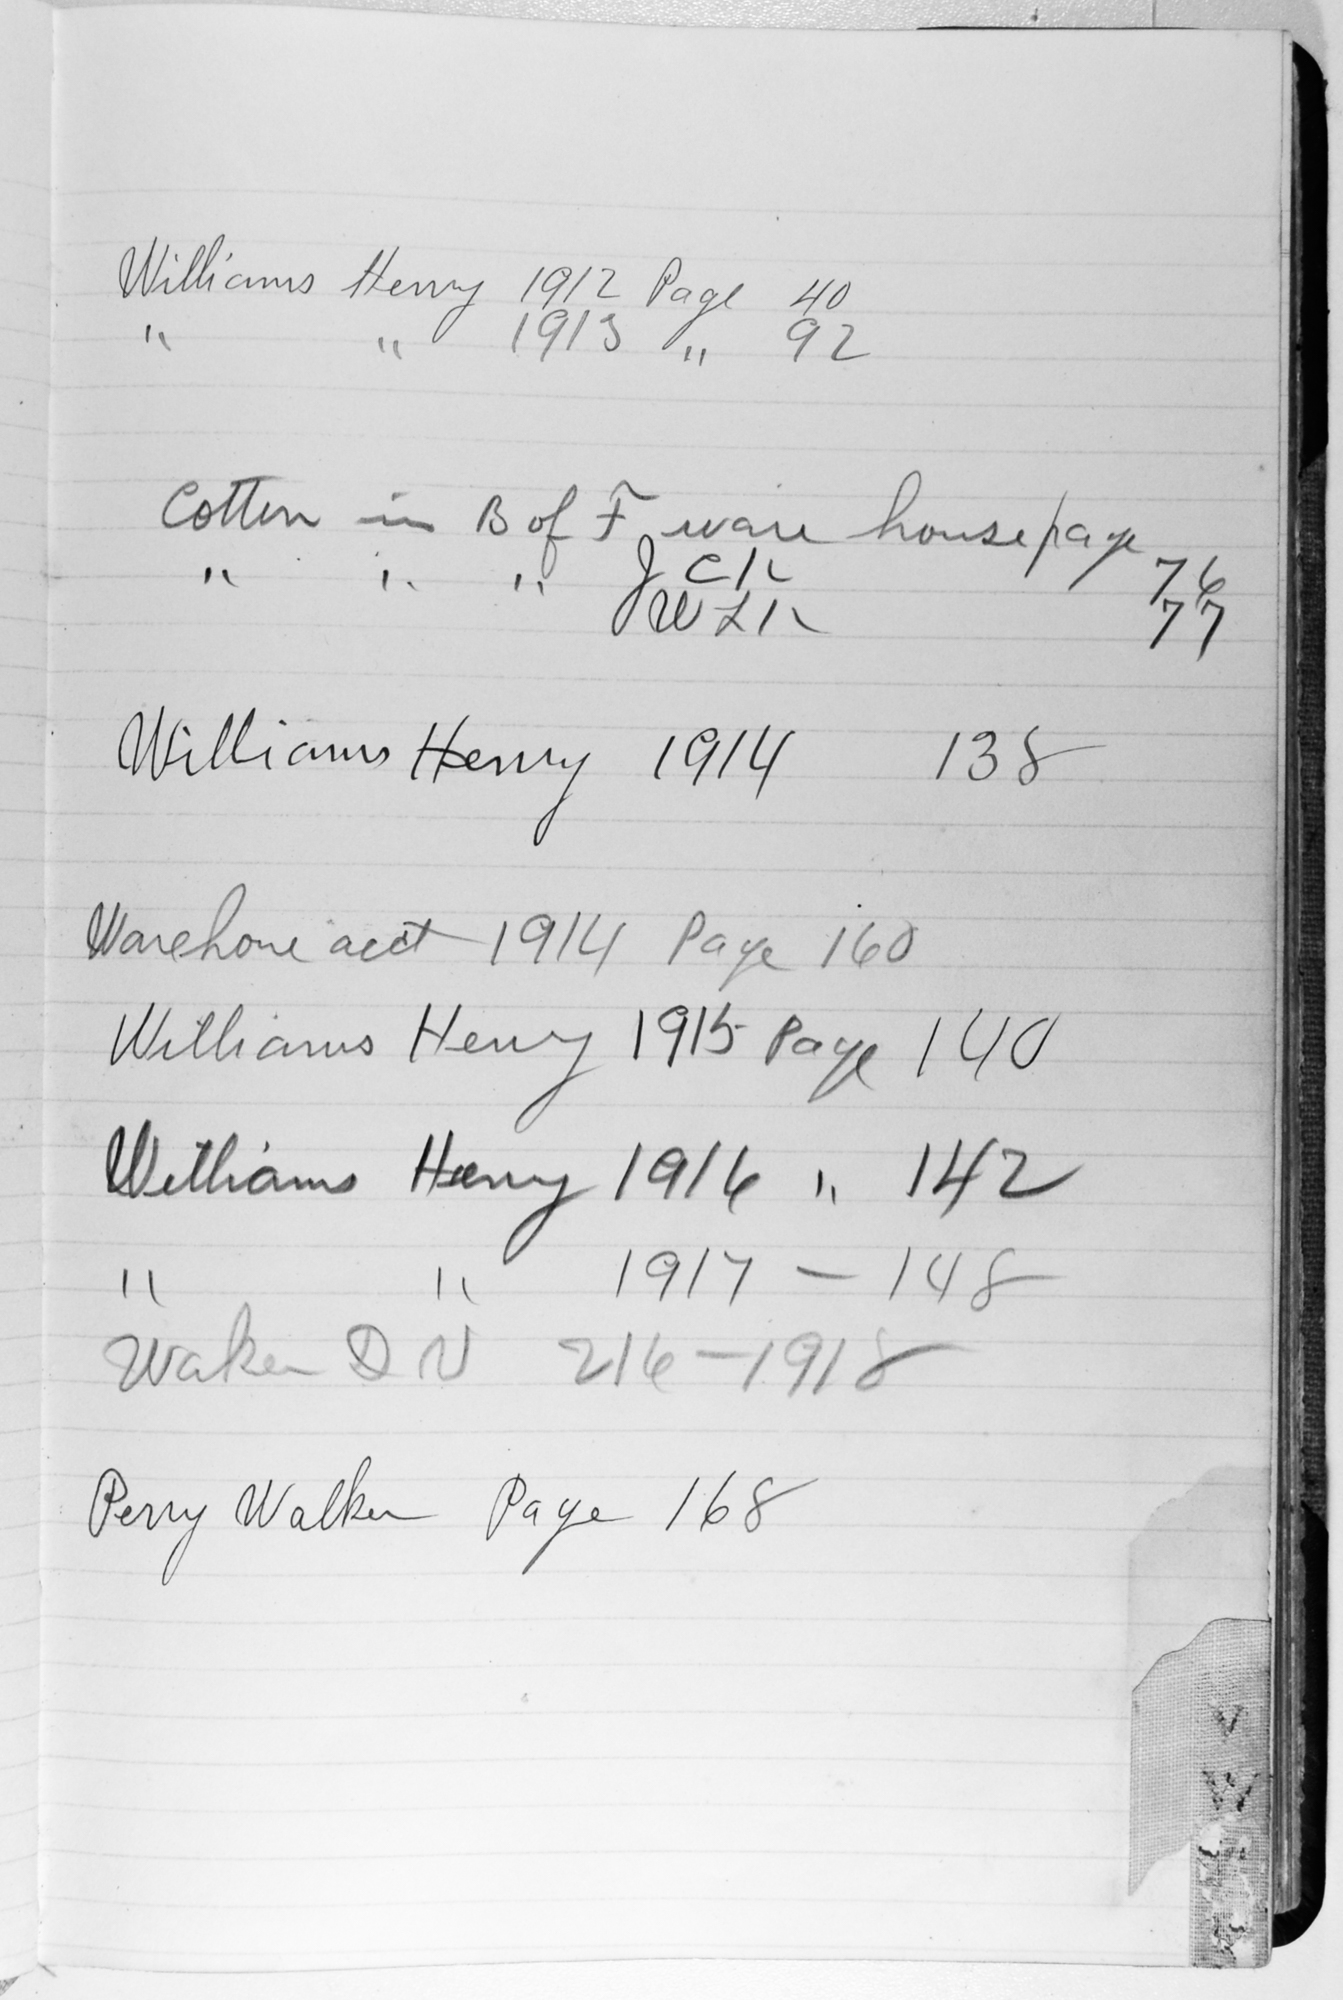 Williams Henry 1912 Page 40
" " 1913 " 92
Cotten in B of F ware house page
" " " J C K 76
J W L K 77
Williams Henry 1914 138
Warehouse acct 1914 Page 160
Williams Henry 1915 Page 140
Williams Henry 1916 " 142
" " 1917 — 148
Walker D V 216 — 1918
Perry Walker Page 168